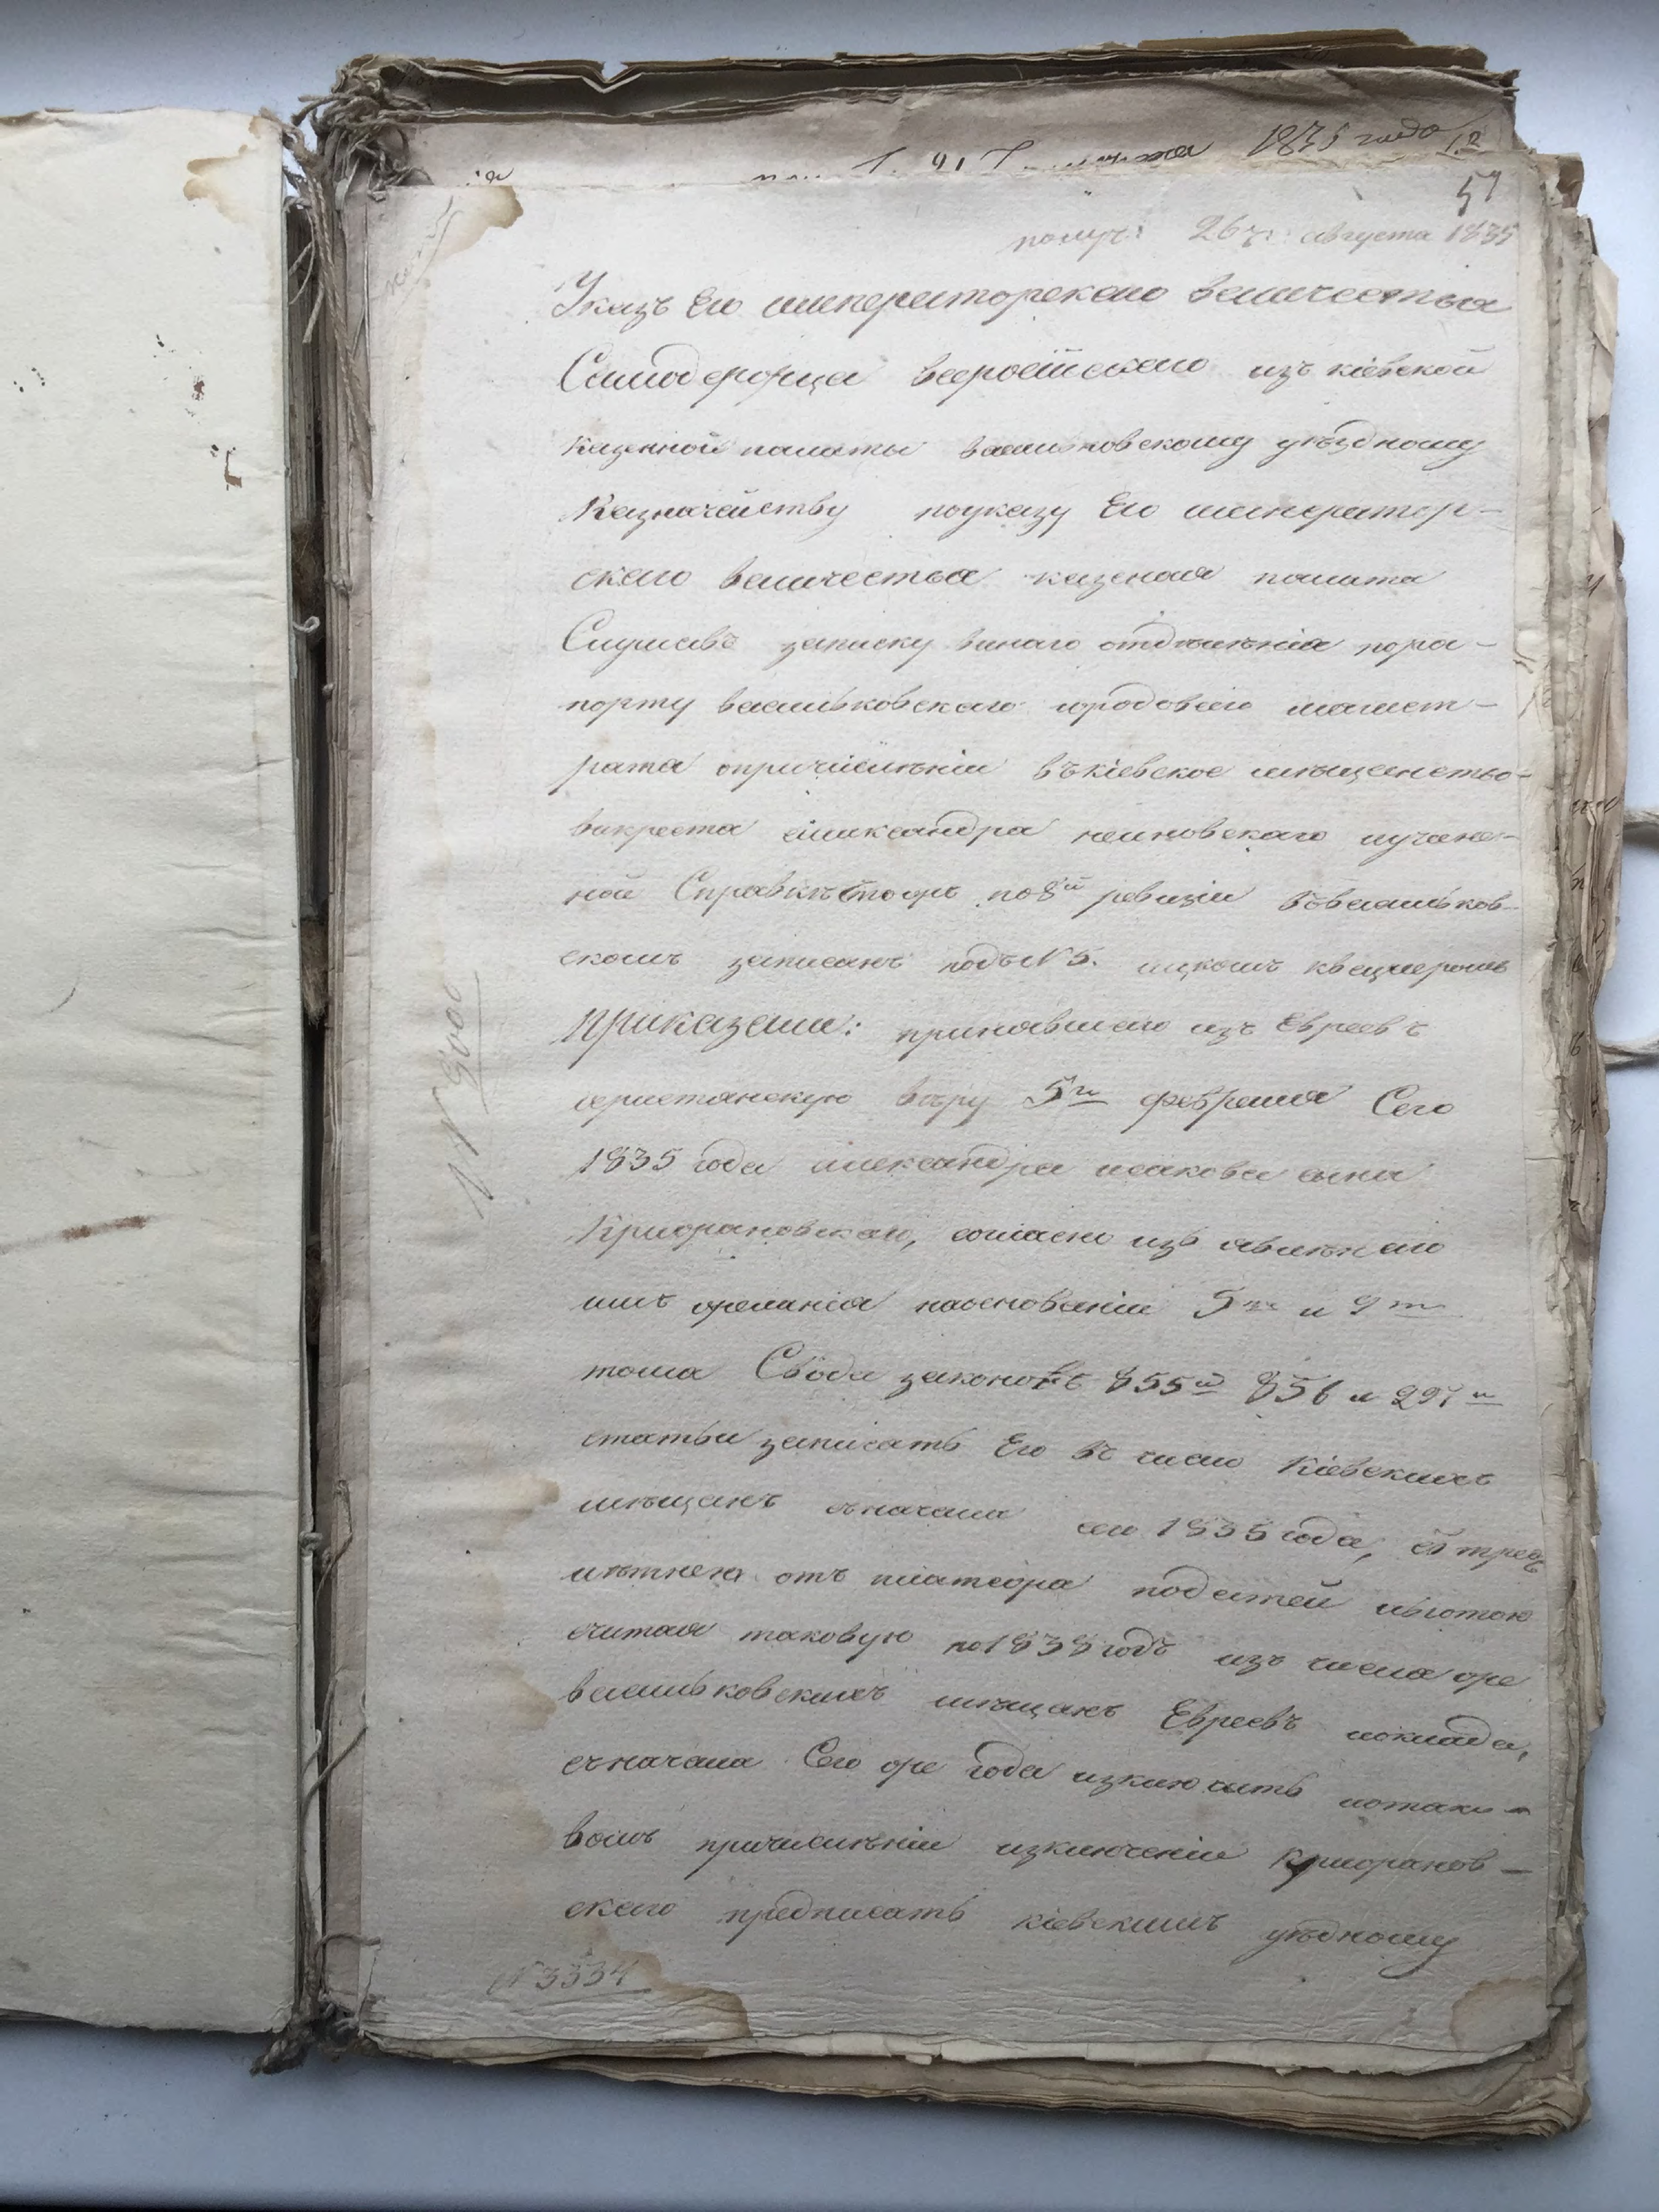 1835 года
12
57
получ: 26 г: августа 1835
Указъ Его императорскаго величества
Самодержца всероссійскаго изъ кіевской
казенной палаты васильковскому уѣздному
Казначейству по указу Его император-
скаго величества казеная палата
Слушавъ записку отдѣленія по ра-
порту васильковскаго городоваго магист-
рата опричисленіи въ кіевское мѣщенство
викреста александра
ной Справкѣ что онъ по 8й ревизіи въ васильков-
скомъ записанъ подъ N 5.
приказали: принявшаго изъ Евреевъ
христіанскую вѣру 5го февраля Сего
1835 года александра исакова сына
согласно изъ явленаго
имъ желанія на основаніи 5го и 9го
тома Свода законовъ 855й 856 и 297й
статьи записать Его въ число Кіевскихъ
мѣщанъ с начала сего 1835 года, съ трех
лѣтнею отъ платежа податей льготою
считая таковую по 1838 годъ изъ числа же
васильковскихъ мѣщанъ Евреевъ исклада,
съ начала Сего же года изключить и о тако-
вомъ причисленіи изключеніи
скаго предписать кіевскимъ уѣздному
N 3334